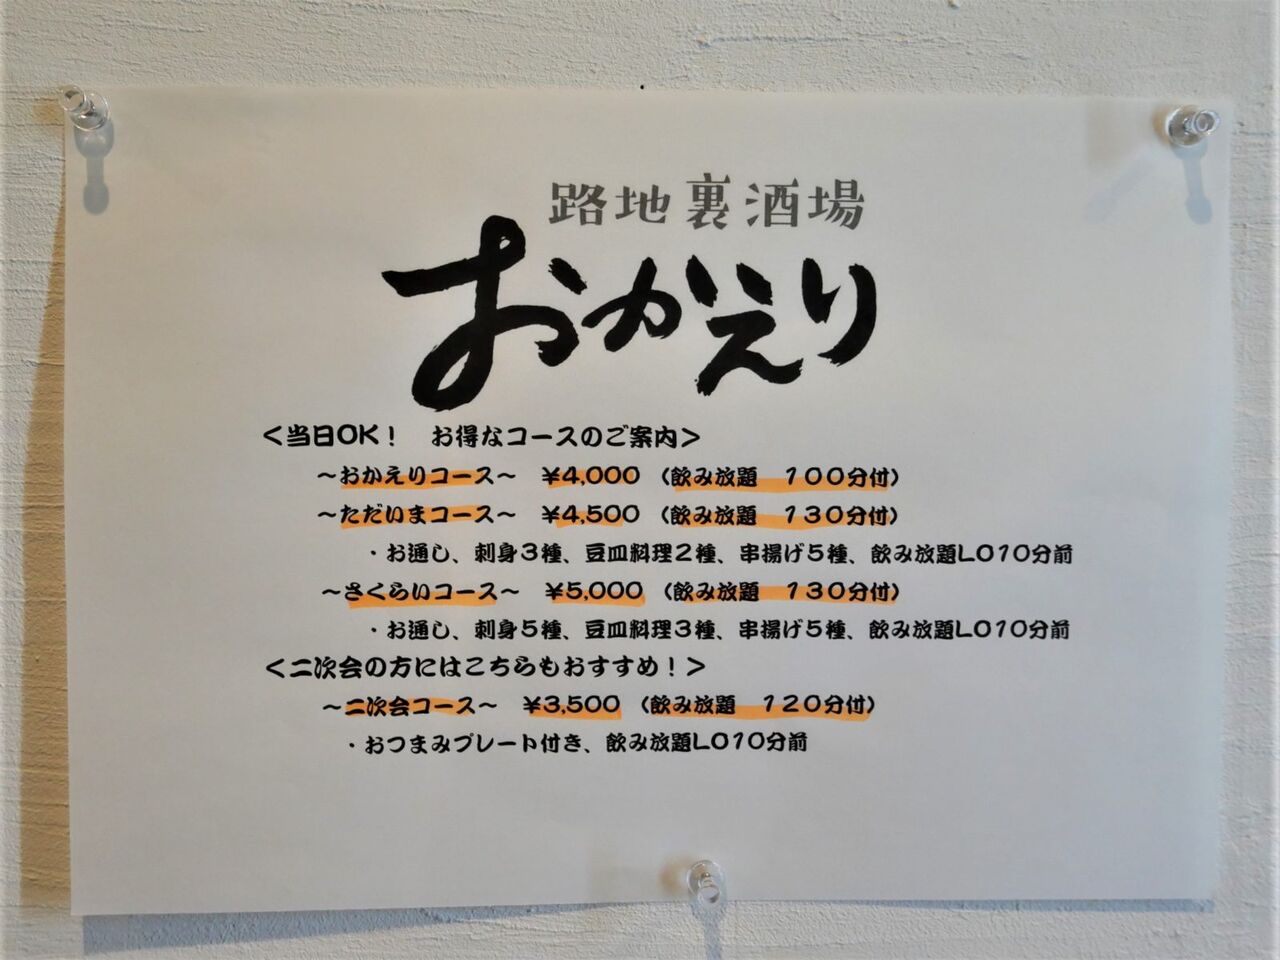 路地裏酒場
おかえり
＜当日OK！　お得なコースのご案内＞
～おかえりコース～　￥4,000　（飲み放題　１００分付）
～ただいまコース～　￥4,500　（飲み放題　１３０分付）
・お通し、刺身３種、豆皿料理２種、串揚げ５種、飲み放題LO10分前
～さくらいコース～　￥5,000　（飲み放題　１３０分付）
・お通し、刺身５種、豆皿料理３種、串揚げ５種、飲み放題LO10分前
＜二次会の方にはこちらもおすすめ！＞
～二次会コース～　￥3,500　（飲み放題　１２０分付）
・おつまみプレート付き、飲み放題LO10分前